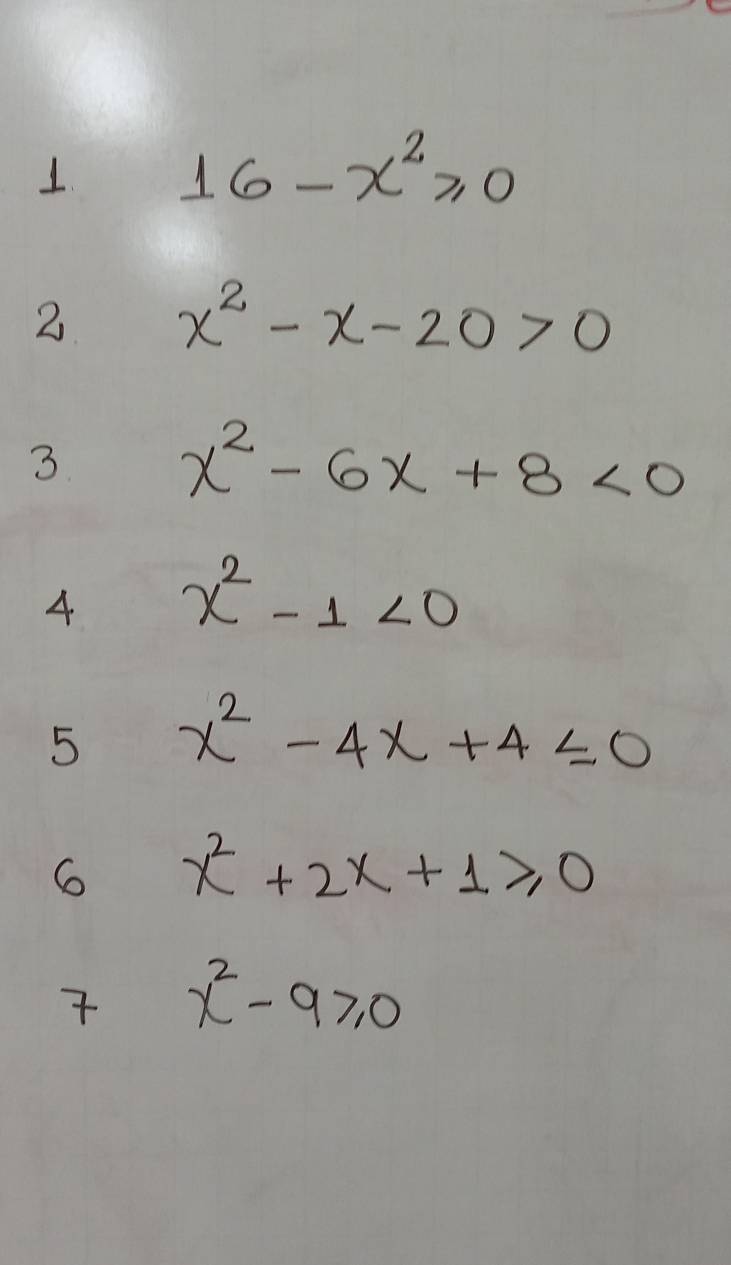 1. 16 - x² ⩾ 0
2. x² - x - 20 > 0
3. x² - 6x + 8 < 0
4 x² - 1 < 0
5 x² - 4x + 4 ≤ 0
6 x² + 2x + 1 ⩾ 0
7 x² - 9 ⩾ 0